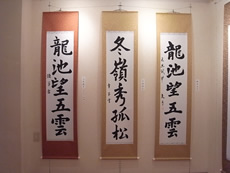 龍池望五雲
冬嶺秀孤松
龍池望五雲